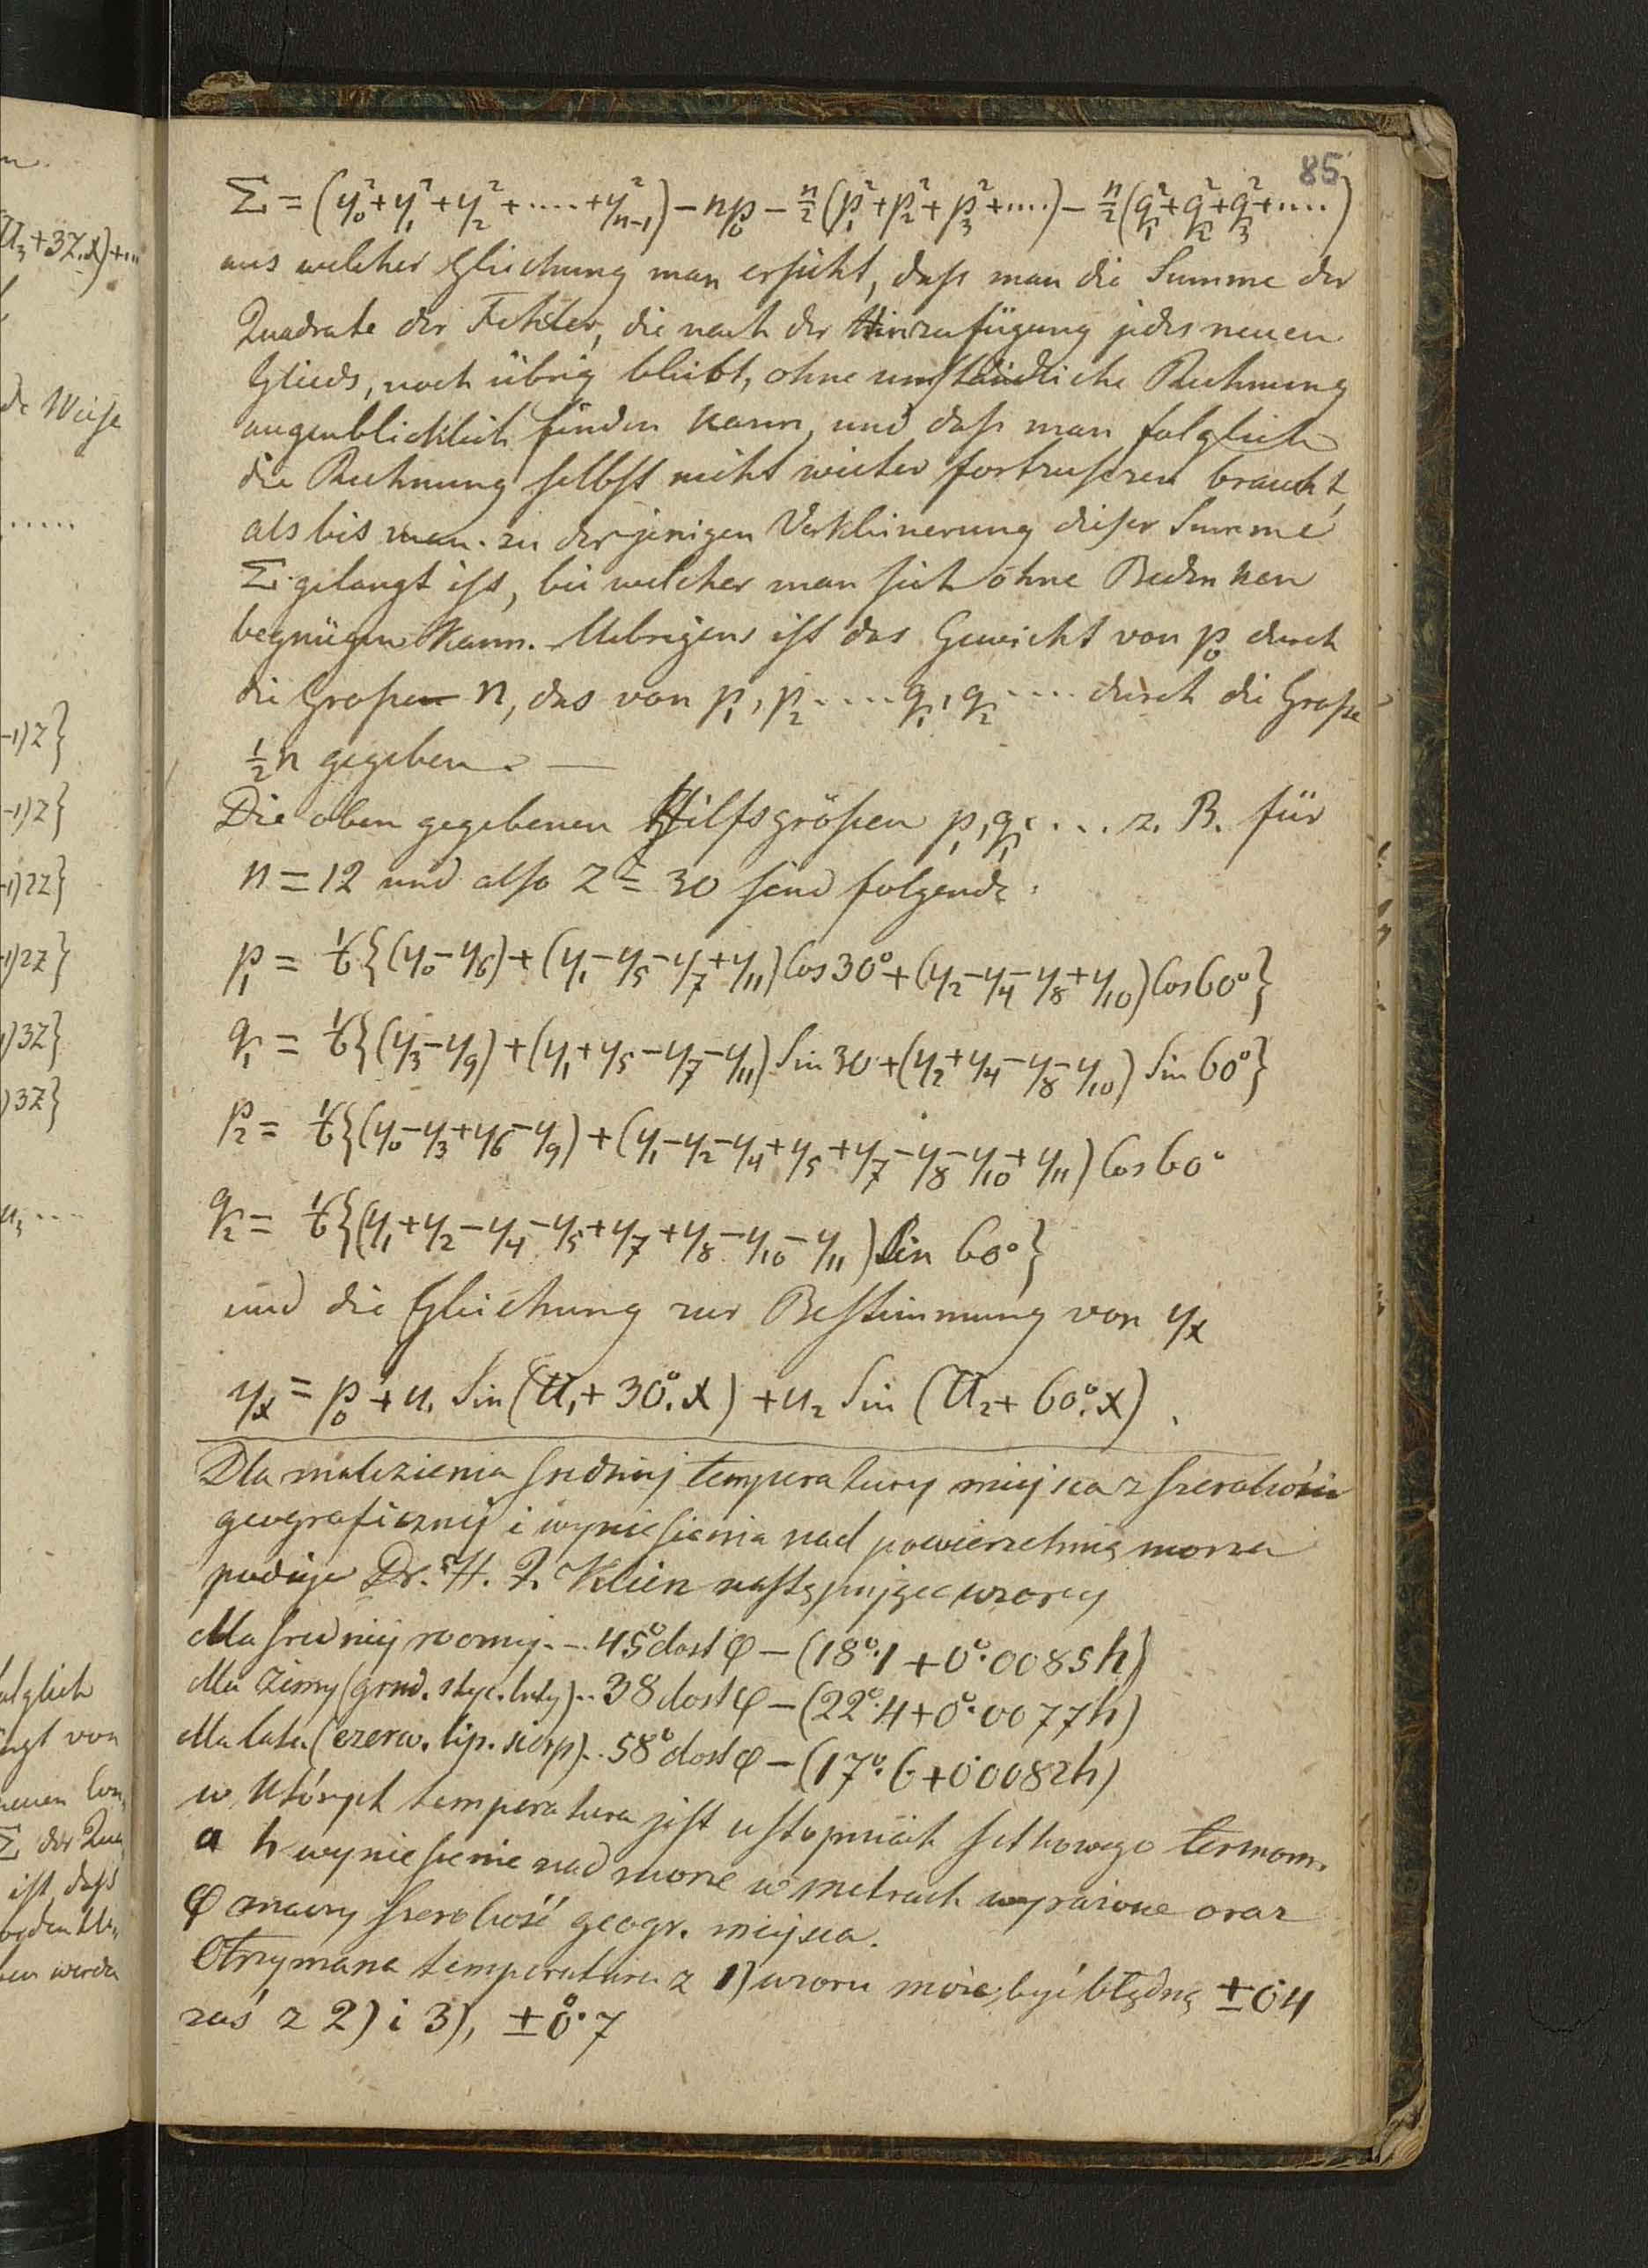 n.
85
U₃+3Z.x)+...
Σ = (y₀²+y₁²+y₂²+.....+y²ₙ₋₁) − np₀ − n/2 (p₁²+p₂²+p₃²+....) − n/2 (q₁²+q₂²+q₃²+....)
aus welcher Gleichung man ersieht, daſs man die Summe der
Quadrate der Fehler, die nach der Hinzufügung jedes neuen
Glieds, noch übrig bleibt, ohne umständliche Rechnung
de Weise
augenblicklich finden kann, und daſs man folglich
die Rechnung selbst nicht weiter fortzusezen braucht,
.....
als bis man zu derjenigen Verkleinerung dieser Summe
Σ gelangt ist, bei welcher man sich ohne Bedenken
begnügen kann. Uebrigens ist das Gewicht von p₀ durch
die Große n, das von p₁, p₂ .... q₁, q₂ .... durch die Große
-1)Z}
½n gegeben. —
-1)Z}
Die oben gegebenen Hilfsgrößen p₁, q₁ .... z. B. für
-1)2Z}
n = 12 und also Z = 30 sind folgende:
-1)2Z}
p₁ = ⅙{(y₀−y₆)+(y₁−y₅−y₇+y₁₁) Cos 30°+(y₂−y₄−y₈+y₁₀) Cos 60°}
1)3Z}
q₁ = ⅙{(y₃−y₉)+(y₁+y₅−y₇−y₁₁) Sin 30+(y₂+y₄−y₈−y₁₀) Sin 60°}
)3Z}
p₂ = ⅙{(y₀−y₃+y₆−y₉)+(y₁−y₂−y₄+y₅+y₇−y₈−y₁₀+y₁₁) Cos 60°
u₃ ....
q₂ = ⅙{(y₁+y₂−y₄−y₅+y₇+y₈−y₁₀−y₁₁) Sin 60°}
und die Gleichung zur Bestimmung von yₓ
yₓ = p₀ + u₁ Sin (U₁+30°.x) + u₂ Sin (U₂+60°.x).
Dla znalezienia średniej temperatury miejsca z szerokości
geograficznej i wyniesienia nad powierzchnią morza
podaje Dr. H. J. Klein następujące wzory
dla średniej rocznej... 45° dost φ − (18°.1 + 0°.0085h)
dla zimy (grud. stycz. luty).. 38 dost φ − (22°.4+0°.0077h)
folglich
dla lata (czerw. lip. sierp).. 58° dost φ − (17°.6+0°0082h)
ngt von
w których temperatura jest w stopniach setkowego termom.
neuen Con.
Σ der Qua
a h wyniesienie nad morze w metrach wyrażone oraz
ist, daſs
φ znaczy szerokość geogr. miejsca.
werden
Otrzymana temperatura z 1) wzoru może być błędną ±0°4
zaś z 2) i 3), ±0°.7